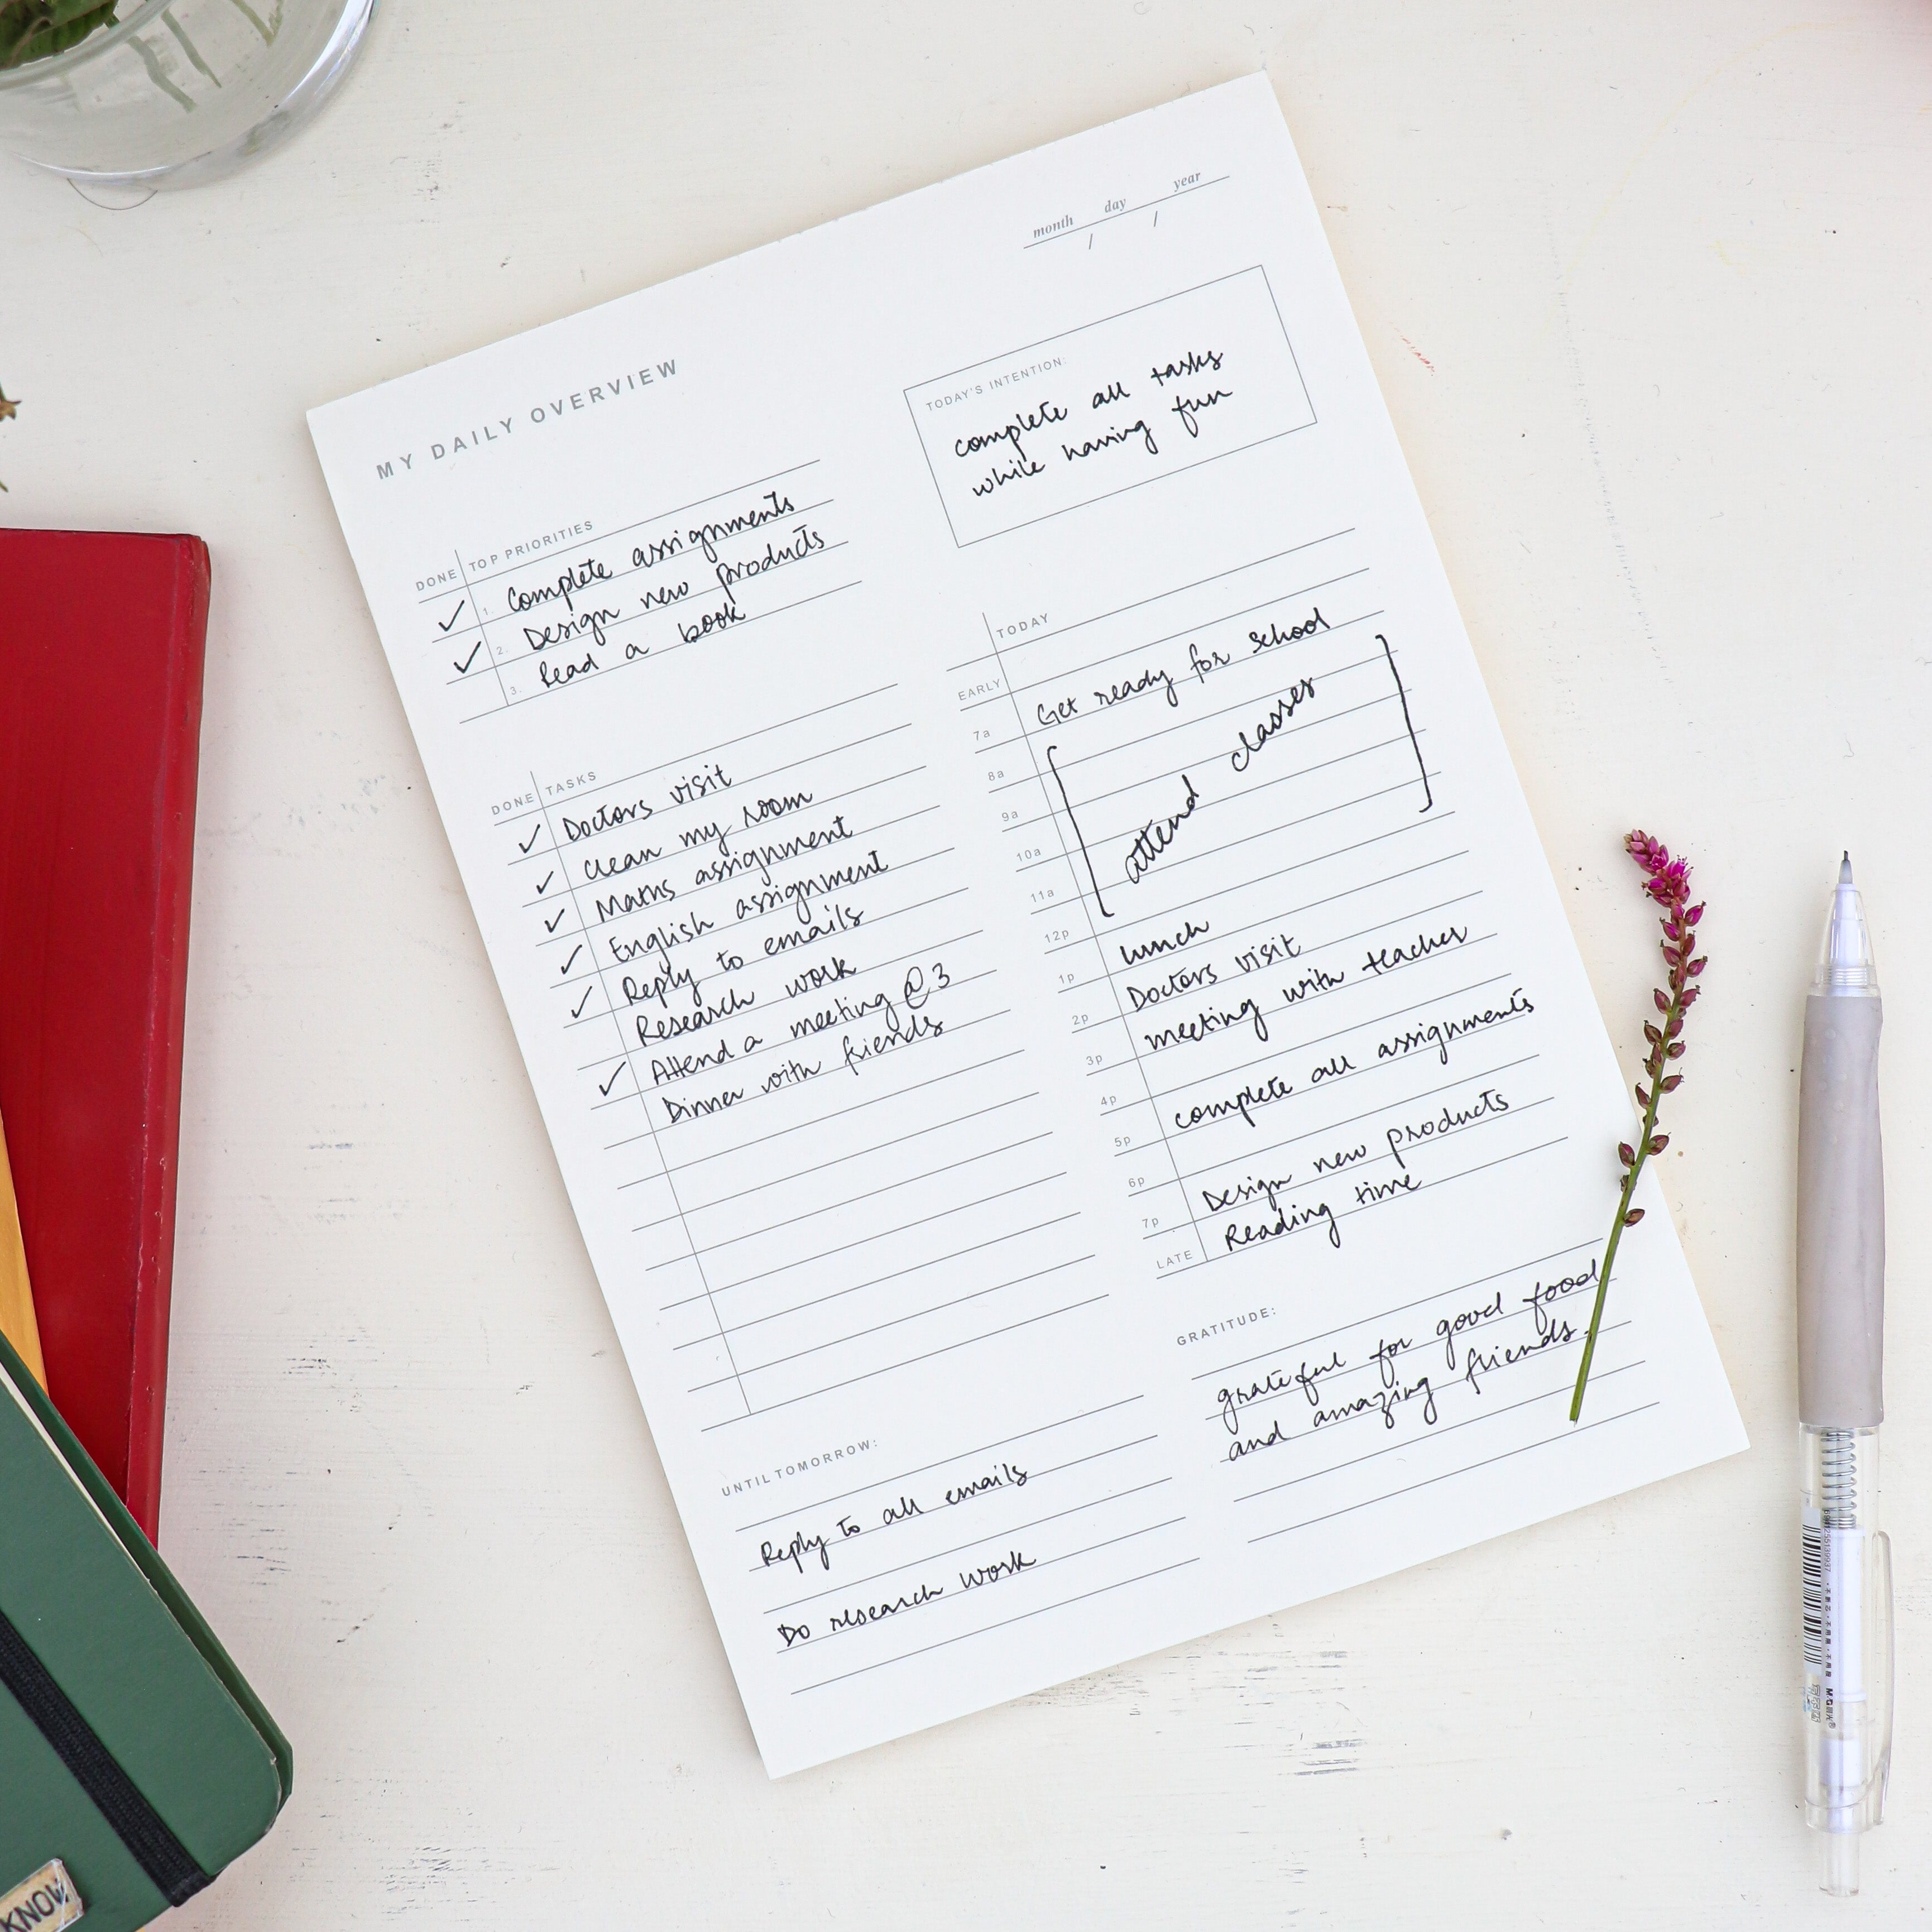 month day year
/ /
MY DAILY OVERVIEW
TODAY'S INTENTION:
complete all tasks
while having fun
DONE TOP PRIORITIES
✓ 1. Complete assignments
✓ 2. Design new products
3. Read a book
DONE TASKS
✓ Doctors visit
✓ clean my room
✓ Maths assignment
✓ English assignment
✓ Reply to emails
Research work
✓ Attend a meeting @ 3
Dinner with friends
TODAY
EARLY
7a Get ready for school
8a
9a
attend classes
10a
11a
12p lunch
1p Doctors visit
2p meeting with teacher
3p
4p complete all assignments
5p
6p Design new products
7p Reading time
LATE
GRATITUDE:
grateful for good food
and amazing friends.
UNTIL TOMORROW:
Reply to all emails
Do research work
KNOW
M&G